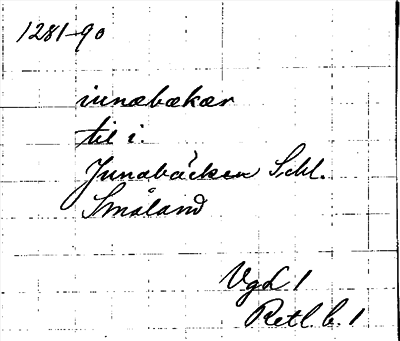 1281-90
iunæbækær
til i.
Junabäcken S. chl.
Småland
VgL 1
Retl. b. 1